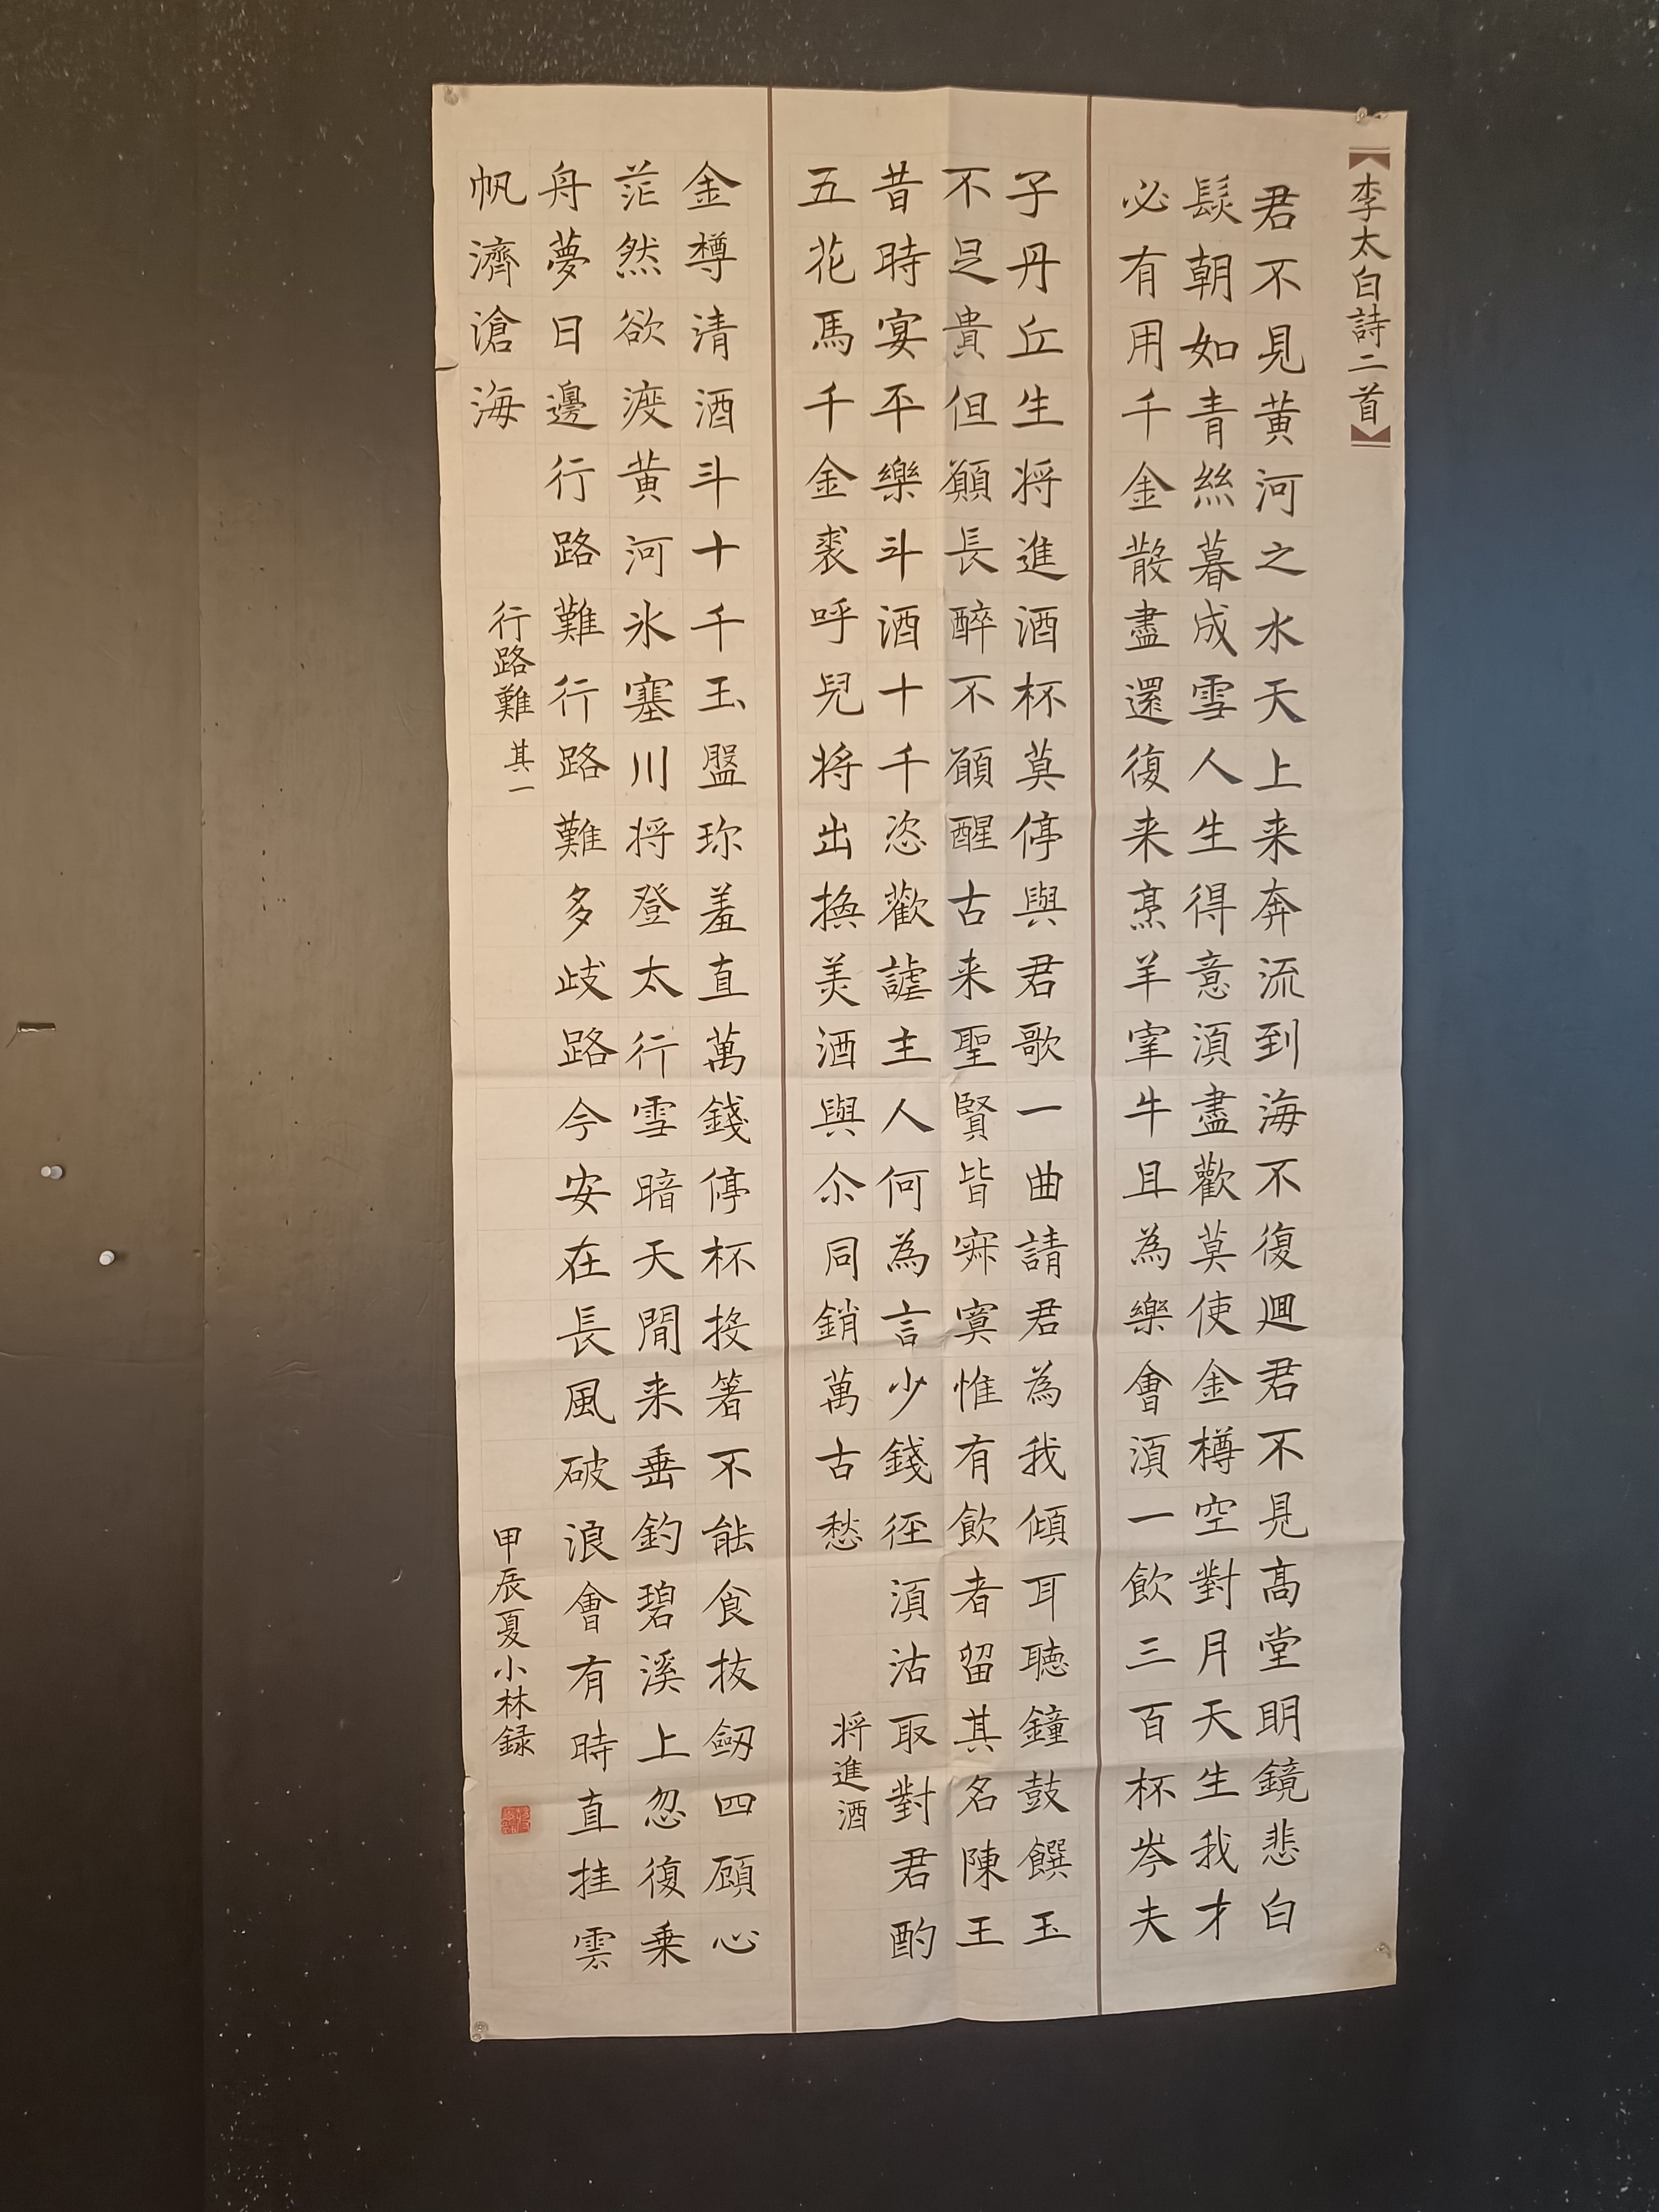 李太白詩二首
君不見黄河之水天上来奔流到海不復迴君不見高堂明鏡悲白
髮朝如青絲暮成雪人生得意須盡歡莫使金樽空對月天生我才
必有用千金散盡還復来烹羊宰牛且為樂會須一飲三百杯岑夫
子丹丘生将進酒杯莫停與君歌一曲請君為我傾耳聴鐘鼓饌玉
不足貴但願長醉不願醒古来聖賢皆寂寞惟有飲者留其名陳王
昔時宴平樂斗酒十千恣歡謔主人何為言少錢徑須沽取對君酌
五花馬千金裘呼兒将出換美酒與尒同銷萬古愁
将進酒
金樽清酒斗十千玉盤珎羞直萬錢停杯投箸不能食抜劒四顧心
茫然欲渡黄河氷塞川将登太行雪暗天閒来垂釣碧溪上忽復乗
舟夢日邊行路難行路難多歧路今安在長風破浪會有時直挂雲
帆濟滄海
行路難 其一
甲辰夏小林録